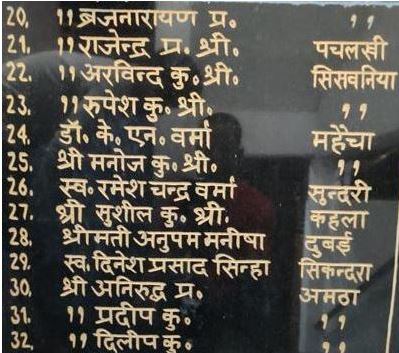 20. ,, ब्रजनारायण प्र. ,,
21. ,, राजेन्द्र प्र. श्री. पचलखी
22. ,, अरविन्द कु. श्री. सिसवनिया
23. ,, रुपेश कु. श्री. ,,
24. डॉ. के. एन. वर्मा महैचा
25. श्री मनोज कु. श्री. ,,
26. स्व. रमेश चन्द्र वर्मा सुन्दरी
27. श्री सुशील कु. श्री. कहला
28. श्रीमती अनुपम मनीषा दुबई
29. स्व. दिनेश प्रसाद सिन्हा सिकन्दरा
30. श्री अनिरुद्ध प्र. अमठा
31. ,, प्रदीप कु. ,,
32. ,, दिलीप कु. ,,